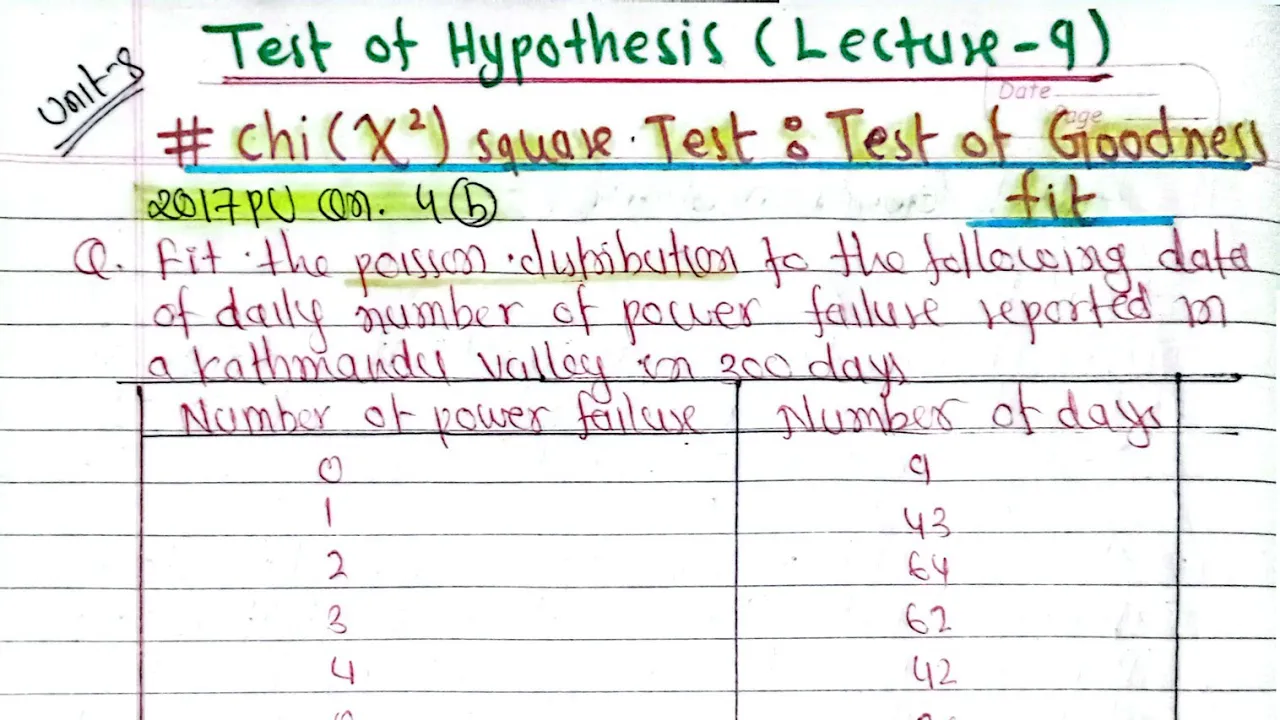 Test of Hypothesis (Lecture-9)
Unit-8
Date
Page
# Chi (χ²) square Test : Test of Goodness
fit
2017 PU Qn. 4 (b)
Q. Fit the poisson distribution to the following data
of daily number of power failure reported in
a Kathmandu valley in 300 days
Number of power failure Number of days
0 9
1 43
2 64
3 62
4 42